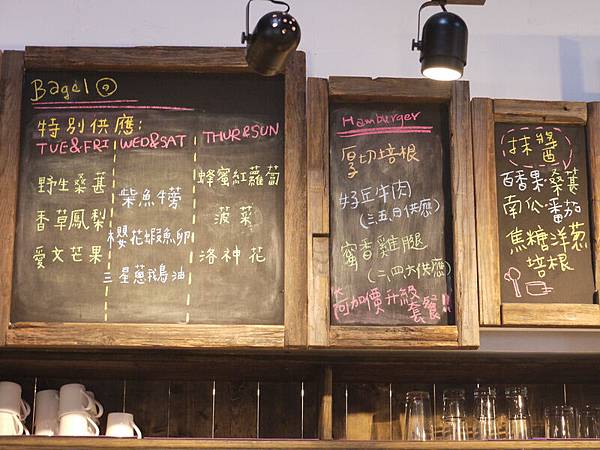 Bagel
特別供應:
TUE&FRI WED&SAT THUR&SUN
野生桑葚
香草鳳梨
愛文芒果
柴魚牛蒡
櫻花蝦魚卵
三星蔥鵝油
蜂蜜紅蘿蔔
菠菜
洛神花
Hamburger
厚切培根
好丘牛肉
(三、五、日供應)
蜜香雞腿
(二、四、六供應)
*可加價升級
套餐!!
抹醬
百香果 桑葚
南瓜 番茄
焦糖洋葱
培根